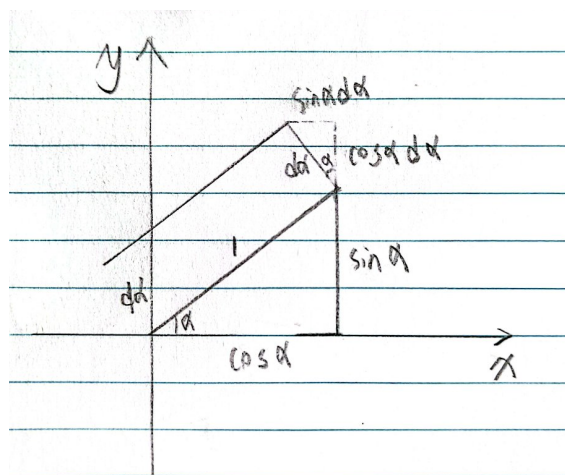 y
sinαdα
dα α cosα dα
1
sin α
dα
α
cosα
x